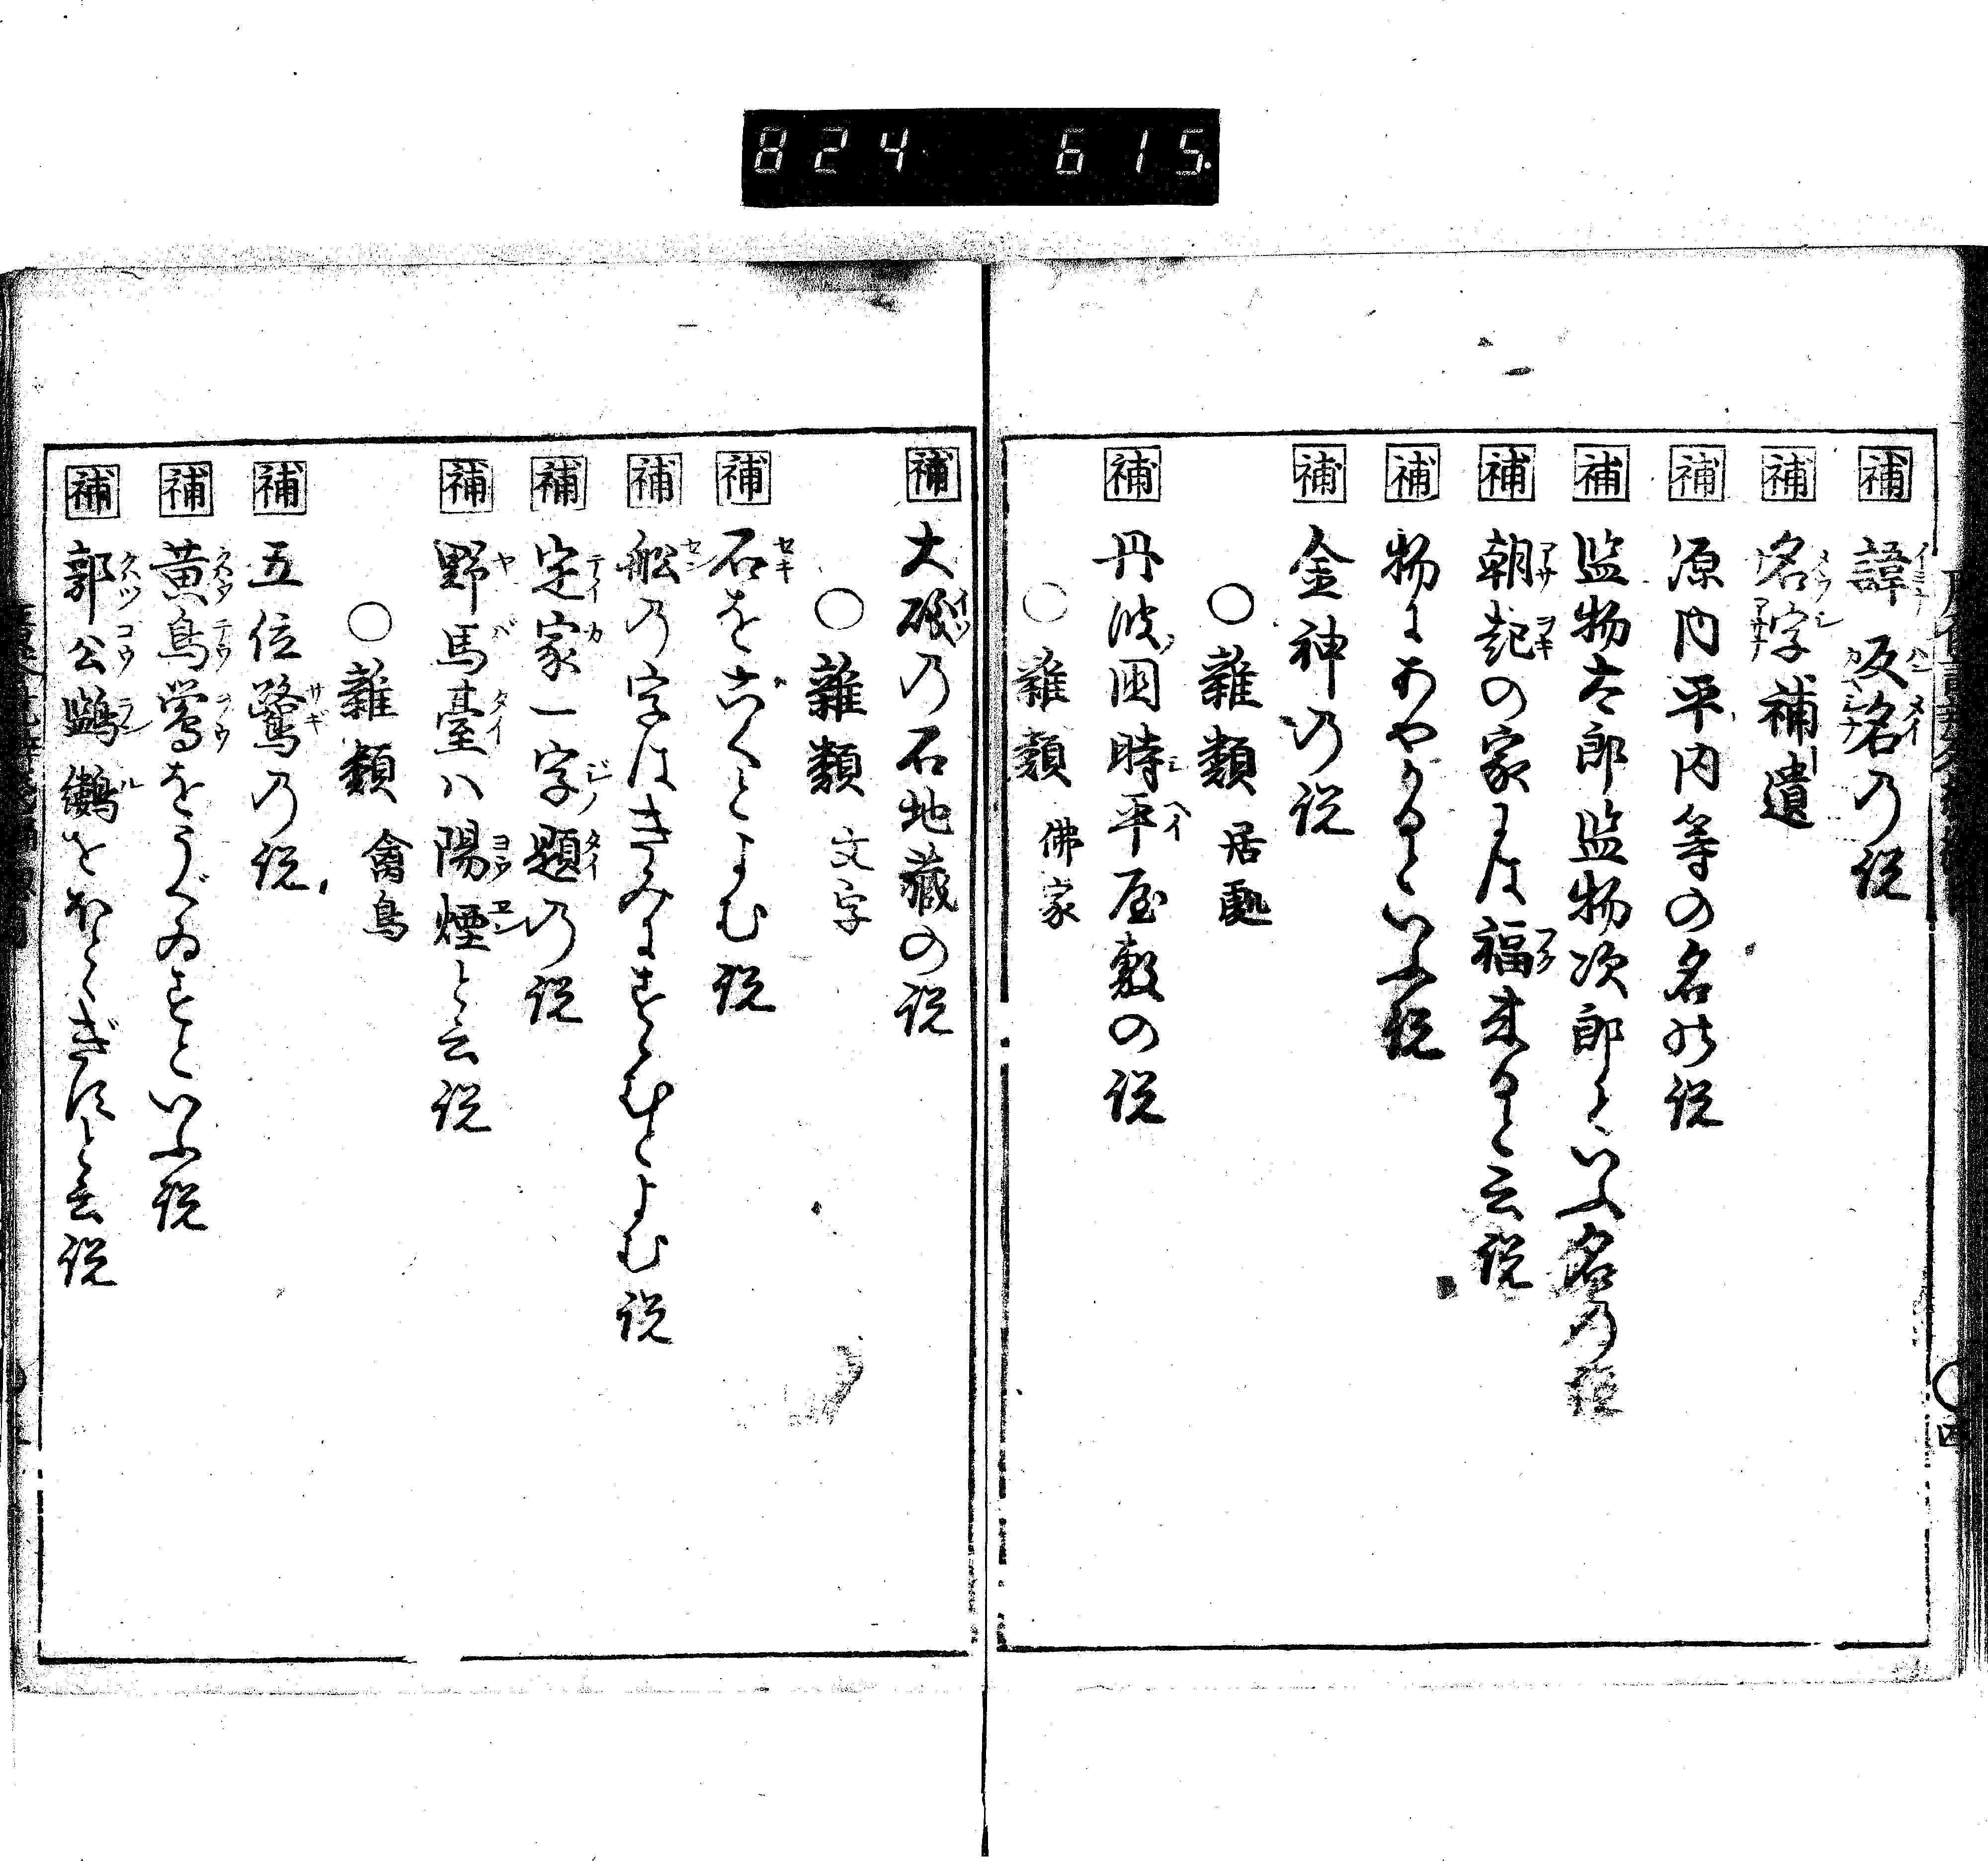 824 615.
補 諱反名の説
補 名字補遺
補 源内平内等の名の説
補 監物太郎監物次郎といふ名の説
補 朝起の家には福来ると云説
補 物にあやかるといふ説
補 金神の説
○雑類 居處
補 丹波国時平屋敷の説
○雑類 佛家
補 大礒の石地蔵の説
○雑類 文字
補 石をこくとよむ説
補 舩の字はきみにすゝむとよむ説
補 定家一字題の説
補 野馬臺ハ陽煙と云説
○雑類 禽鳥
補 五位鷺の説
補 黄鳥鶯をうぐゐすといふ説
補 郭公をほとゝぎすと云説
四